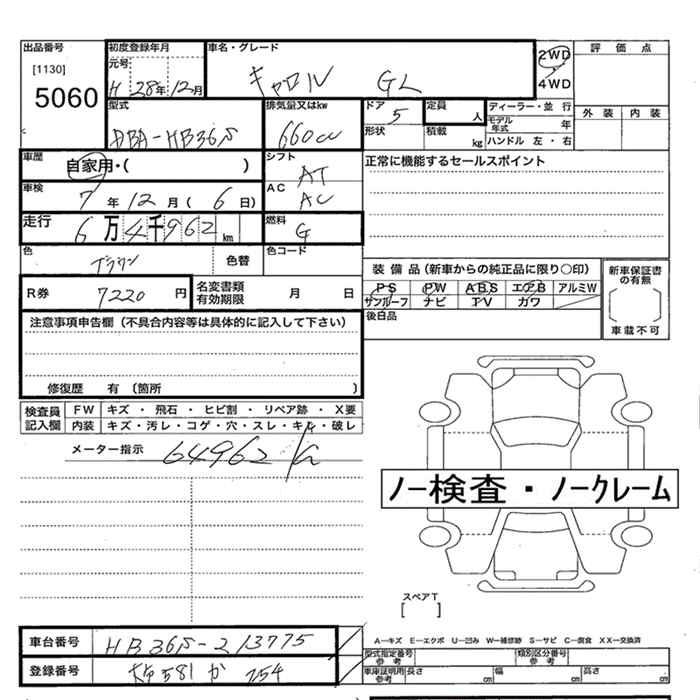 出品番号
[1130]
5060
初度登録年月
元号
H 28年 12月
車名・グレード
キャロル GL
2WD
4WD
評価点
外装 内装
型式
DBA-HB36S
排気量又はkw
660cc
ドア
5
形状
定員
人
積載
kg
ディーラー・並行
モデル年式 年
ハンドル 左・右
車歴
自家用・( )
シフト
AT
正常に機能するセールスポイント
車検
7年 12月 (6日)
AC
AC
走行
6万4千962 km
燃料
G
色
ブラウン
色替
色コード
R券
7220 円
名変書類有効期限
月 日
装備品(新車からの純正品に限り○印)
PS PW ABS エアB アルミW
サンルーフ ナビ TV カワ
新車保証書の有無
車載不可
後日品
注意事項申告欄(不具合内容等は具体的に記入して下さい)
修復歴 有(箇所 )
検査員記入欄
FW キズ・飛石・ヒビ割・リペア跡・X要
内装 キズ・汚レ・コゲ・穴・スレ・キレ・破レ
メーター指示
64962
ノー検査・ノークレーム
スペアT
[ ]
車台番号
HB36S-213775
登録番号
581 か 254
A-キズ E-エクボ U-凹み W-補修跡 S-サビ C-腐食 XX-交換済
型式指定番号
参考
類別区分番号
参考
車庫証明用
参考
長さ cm
幅 cm
高さ cm